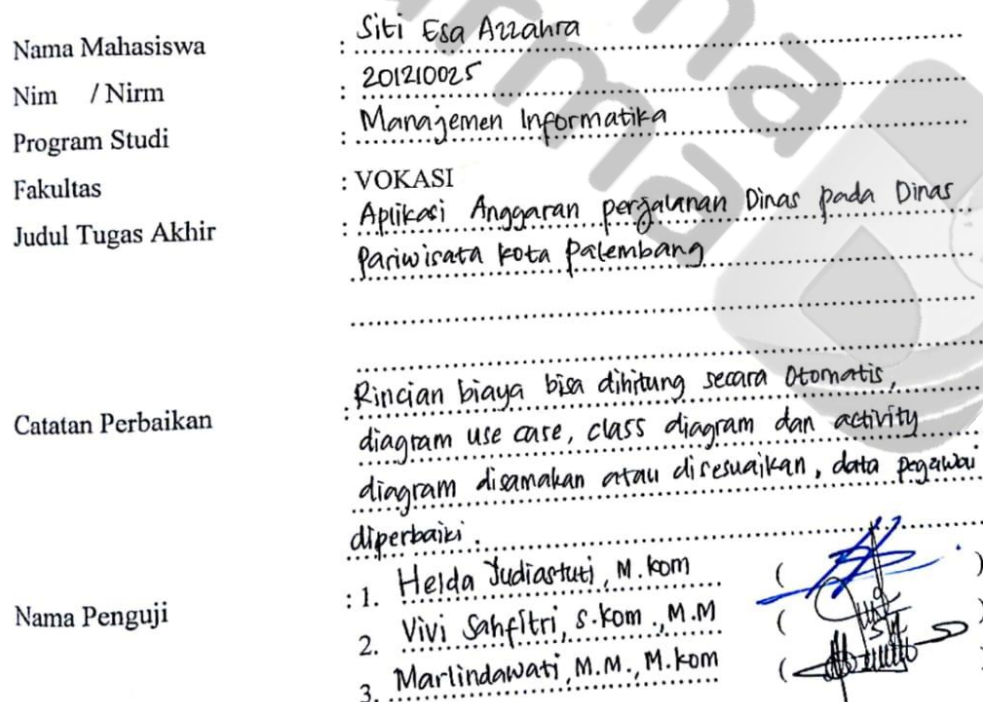 Nama Mahasiswa : Siti Esa Azzahra
Nim / Nirm : 201210025
Program Studi : Manajemen Informatika
Fakultas : VOKASI
Judul Tugas Akhir : Aplikasi Anggaran perjalanan Dinas pada Dinas
Pariwisata kota palembang
Catatan Perbaikan : Rincian biaya bisa dihitung secara otomatis,
diagram use case, class diagram dan activity
diagram disamakan atau disesuaikan, data pegawai
diperbaiki.
Nama Penguji : 1. Helda Yudiastuti, M.kom ( )
2. Vivi Sahfitri, S.kom., M.M ( )
3. Marlindawati, M.M., M.kom ( )